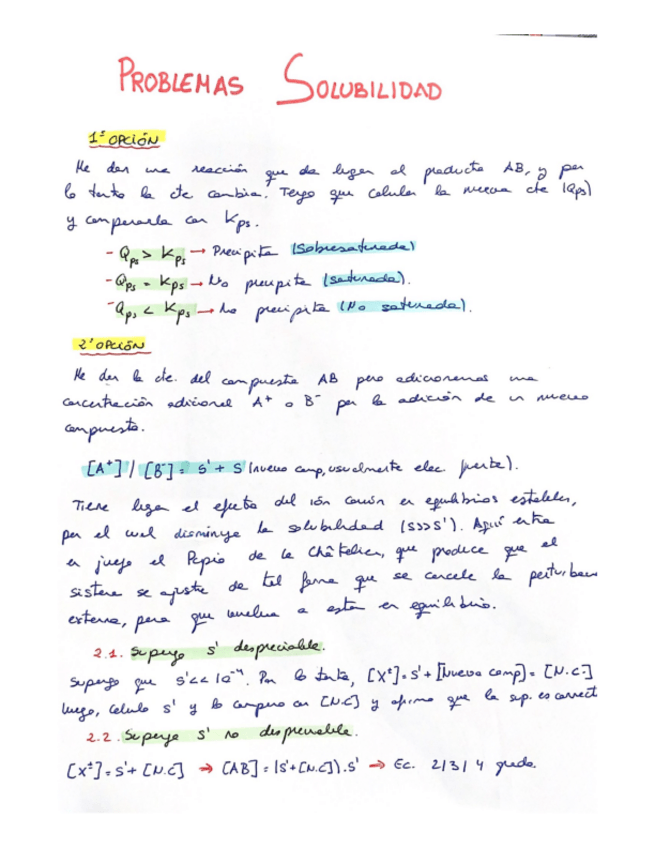 PROBLEMAS SOLUBILIDAD
1ª OPCIÓN
Me dan una reacción que da lugar al producto AB, y por
lo tanto la cte cambia. Tengo que calcular la nueva cte (Qps)
y compararla con Kps.
- Qps > Kps → Precipita (Sobresaturada)
- Qps = Kps → No precipita (saturada).
- Qps < Kps → No precipita (No saturada).
2ª OPCIÓN
Me dan la cte. del compuesto AB pero adicionamos una
concentración adicional A⁺ o B⁻ por la adición de un nuevo
compuesto.
[A⁺] / [B⁻] = s' + s (nuevo comp, usualmente elec. fuerte).
Tiene lugar el efecto del ión común en equilibrios estables,
por el cual disminuye la solubilidad (s>>s'). Aquí entra
en juego el Ppio de Le Châtelier, que produce que el
sistema se ajuste de tal forma que se cancele la perturban
externa, para que vuelva a estar en equilibrio.
2.1. Supongo s' despreciable.
Supongo que s'<< 10⁻⁴. Por lo tanto, [X±] = s' + [Nuevo comp] = [N.C.]
luego, calculo s' y lo comparo con [N.C] y afirmo que la sup. es correct
2.2. Supongo s' no despreciable.
[X±] = s' + [N.C] → [AB] = (s'+[N.C]).s' → Ec. 2/3/4 grado.